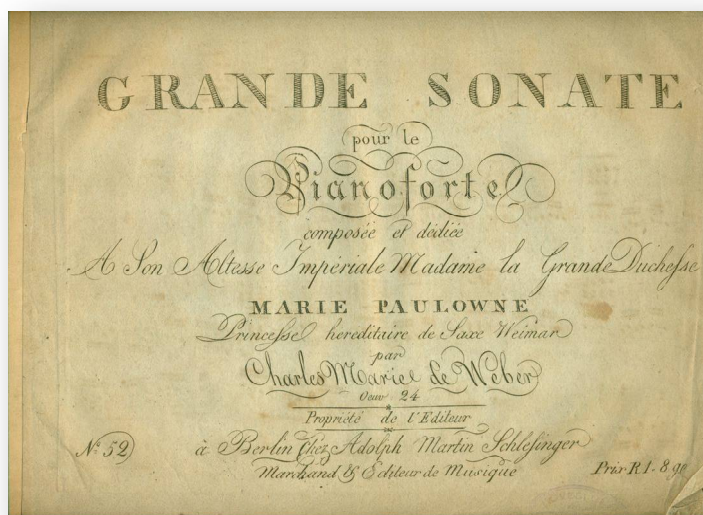 GRANDE SONATE
pour le
Pianoforte
composée et dédiée
A Son Altesse Impériale Madame la Grande Duchesse
MARIE PAULOWNE
Princesse hereditaire de Saxe Weimar
par
Charles Marie de Weber
Oeuv. 24
Propriété de l'Editeur
No. 52
à Berlin chez Adolph Martin Schlesinger
Marchand & Editeur de Musique
Prix R 1. 8 gr